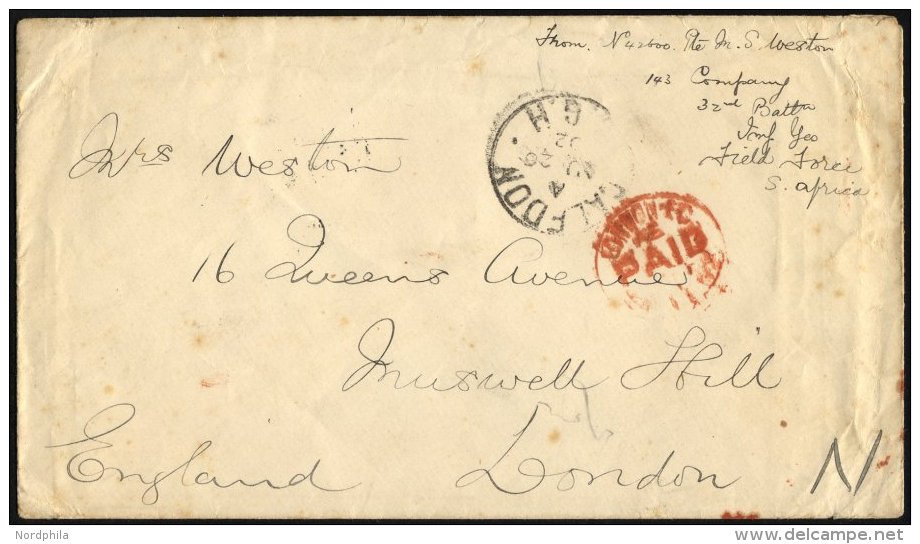 From. N 42600. Pte M. S. Weston
143 Company
32nd Battn
Imp Yeo
Field Force
S. Africa
Mrs Weston
16 Queens Avenue
Muswell Hill
London
England
N
CALEDON
G.H
AU 29
02
LONDON E.C
PAID
Nordphila
delcampe.net